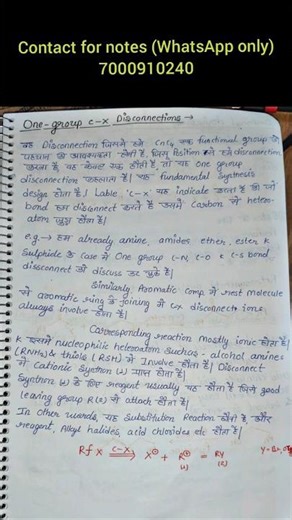 Contact for notes (WhatsApp only)
7000910240
One-group c-x Disconnections →
वह Disconnection जिसमें हमे Only एक functional group की
पहचान की आवश्यकता होती है, जिस Position से हमें disconnection
करना है वह केवल एक होती है, तो यह One group
disconnection कहलाता है। यह fundamental synthesis
design होता है। Lable 'C-x' यह indicate करता है कि जो
bond हम disconnect करते है उसमें Carbon से hetero-
atom जुड़ा होता है।
e.g → हम already amine, amides ether, ester &
Sulphide के case में One group C-N, C-O & C-S bond
disconnect की discuss कर चुके है।
Similarly, Aromatic comp. में rest molecule
में aromatic ring के joining में Cx disconnections
always involve होता है।
Corresponding reaction mostly ionic होता है।
& इसमें nucleophilic heteroatom such as - alcohol amines
(RNH2) & thiols (RSH) में Involve होता है। Disconnect
में Cationic Synthon (x) प्राप्त होता है।
Synthon (x) के लिए reagent usually वह होता है जिसमें good
leaving group R(2) से attach होता है।
In other words, यह Substitution Reaction होती है, और
reagent, Alkyl halides, acid chlorides etc होता है।
R x C-x X⊖ + R⊕ = RY
(1) (2)